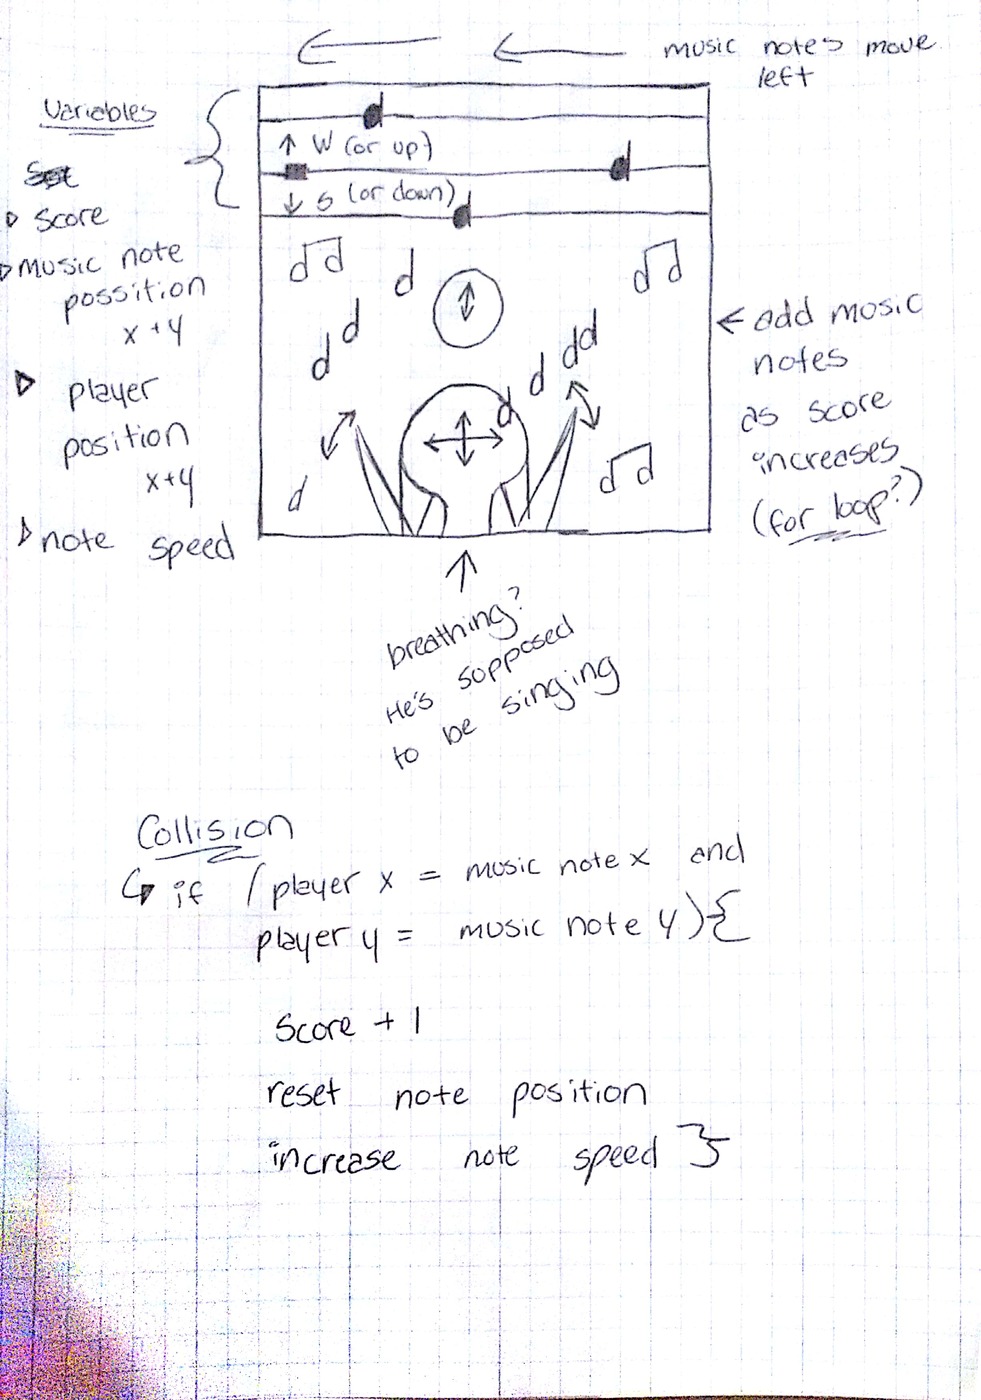 music notes move
left
Variables
Score
music note
possition
x + y
player
position
x+y
note speed
W (or up)
S (or down)
add music
notes
as score
increases
(for loop?)
breathing?
He's supposed
to be singing
Collision
if (player x = music note x and
player y = music note y) {
Score + 1
reset note position
increase note speed }